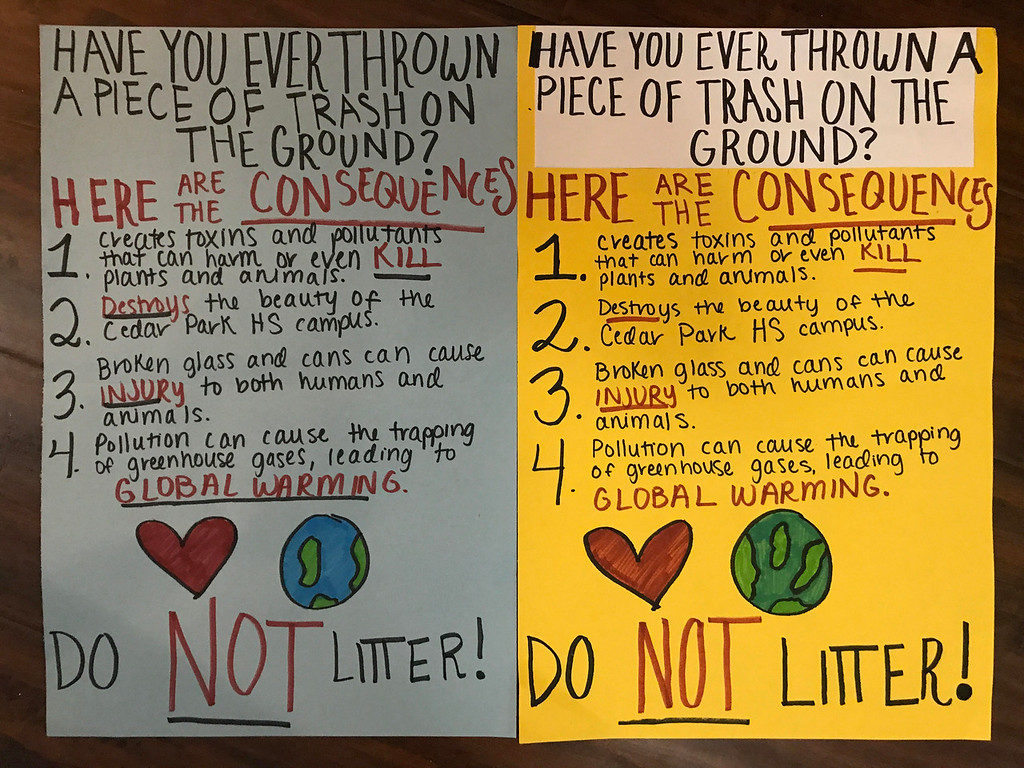 HAVE YOU EVER THROWN
A PIECE OF TRASH ON
THE GROUND?
HERE ARE THE CONSEQUENCES
1. Creates toxins and pollutants
that can harm or even KILL
plants and animals.
2. Destroys the beauty of the
Cedar Park HS campus.
3. Broken glass and cans can cause
INJURY to both humans and
animals.
4. Pollution can cause the trapping
of greenhouse gases, leading to
GLOBAL WARMING.
DO NOT LITTER!
HAVE YOU EVER THROWN A
PIECE OF TRASH ON THE
GROUND?
HERE ARE THE CONSEQUENCES
1. Creates toxins and pollutants
that can harm or even KILL
plants and animals.
2. Destroys the beauty of the
Cedar Park HS campus.
3. Broken glass and cans can cause
INJURY to both humans and
animals.
4. Pollution can cause the trapping
of greenhouse gases, leading to
GLOBAL WARMING.
DO NOT LITTER!